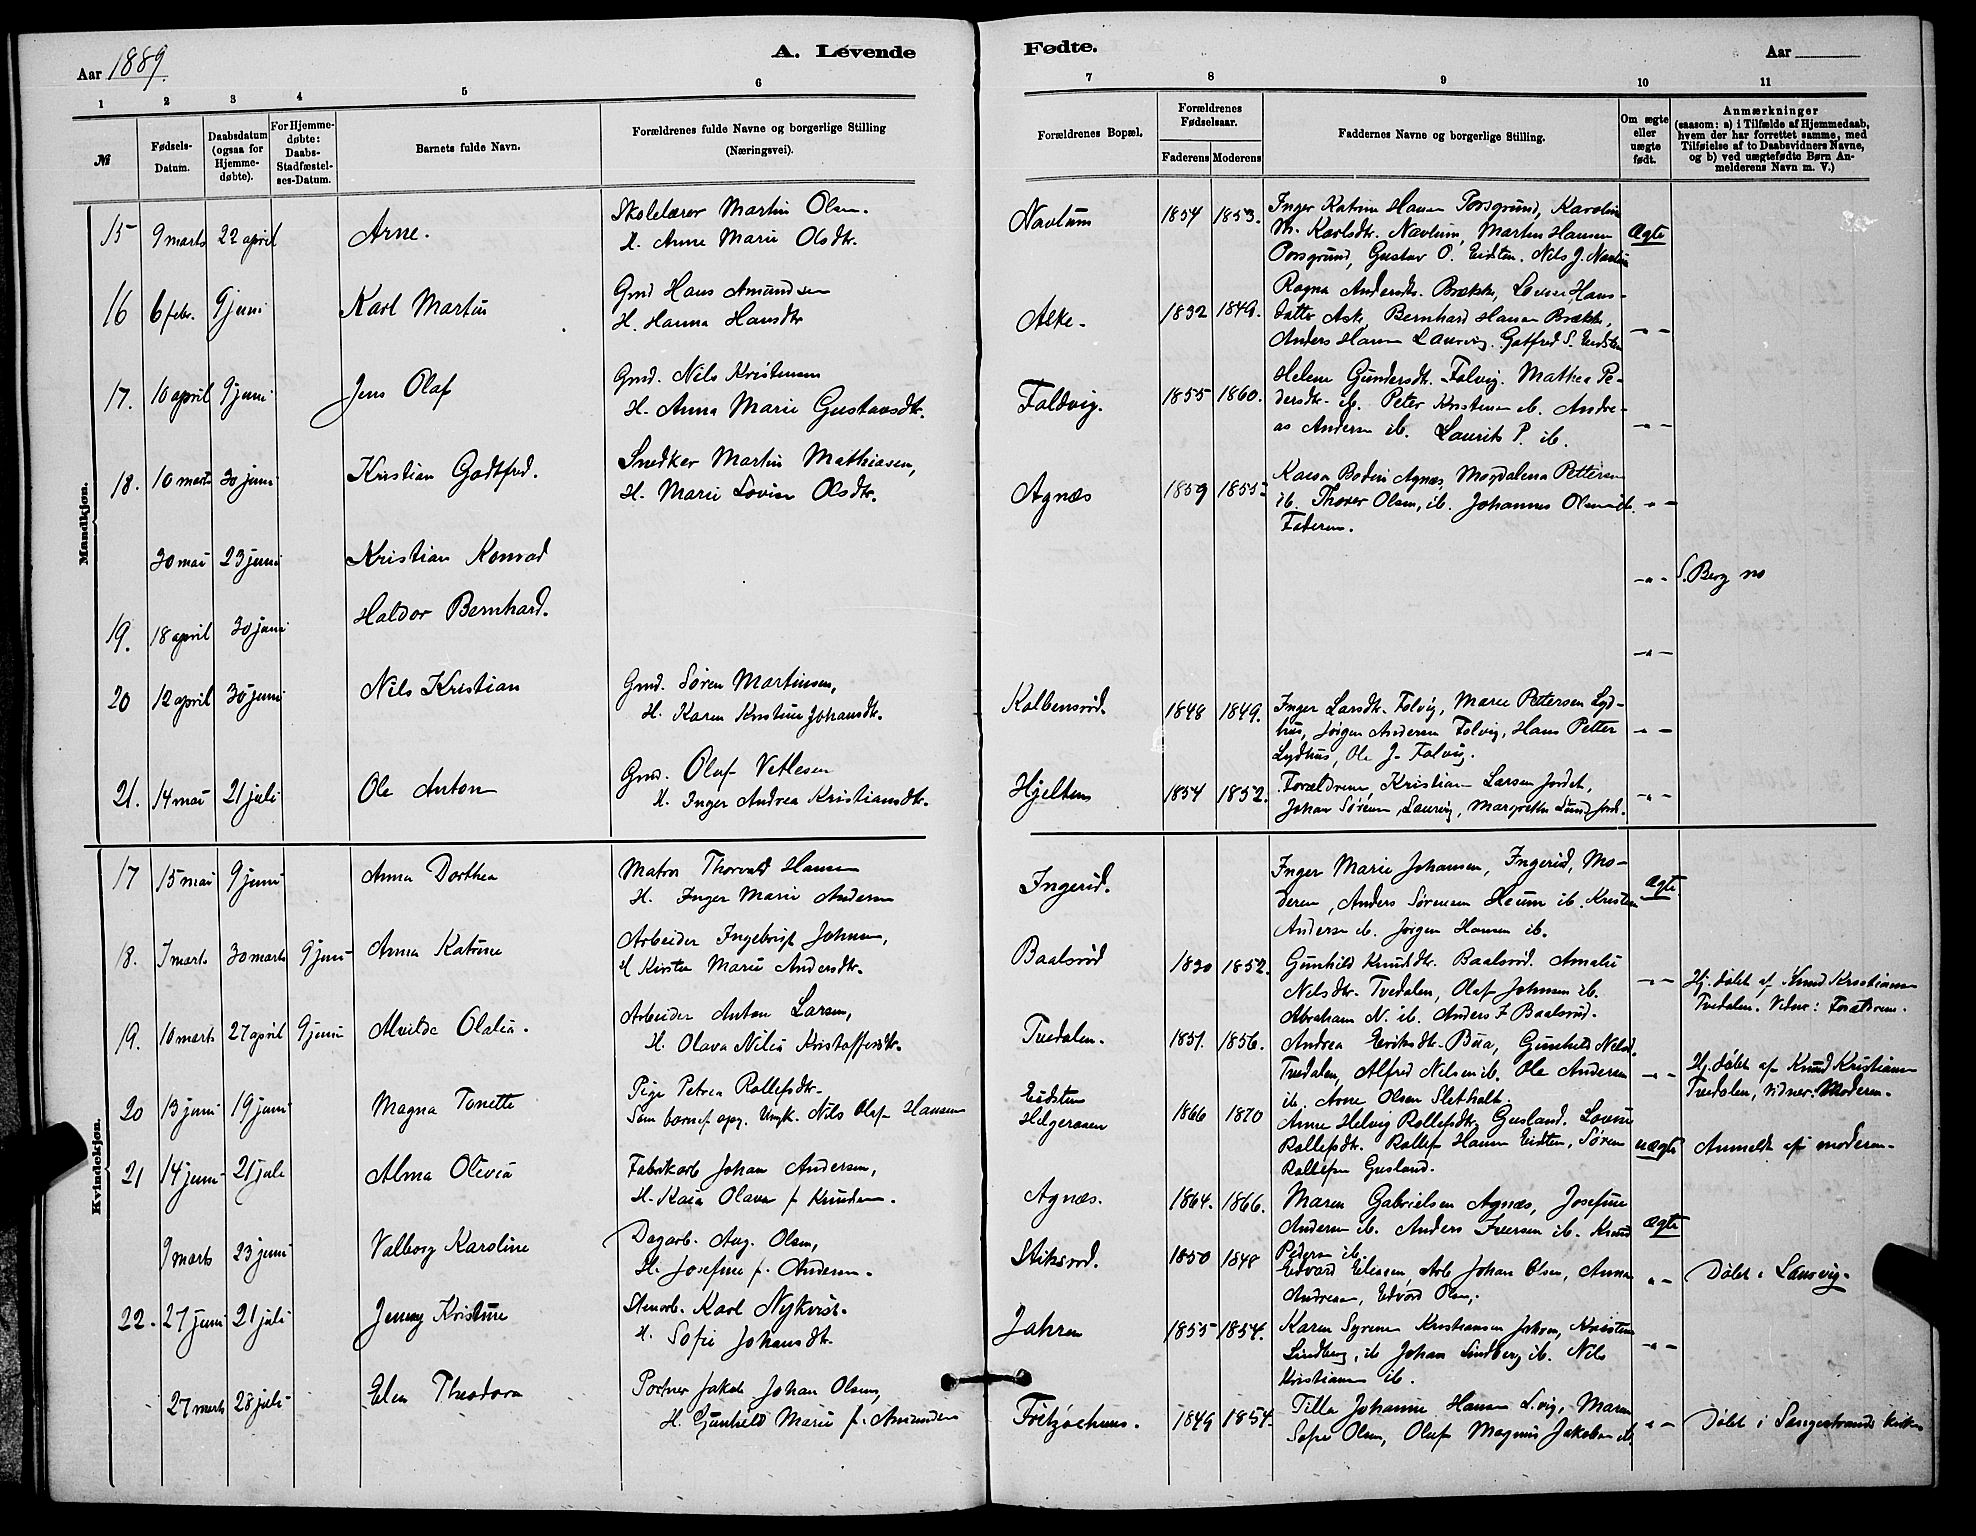 Aar 1889.
A. Levende
Fødte.
Aar
1 2 3 4 5 6 7 8 9 10 11
№
Fødsels-Datum.
Daabsdatum (ogsaa for Hjemme-døbte).
For Hjemme-døbte: Daabs-Stadfæstel-ses-Datum.
Barnets fulde Navn.
Forældrenes fulde Navne og borgerlige Stilling (Næringsvei).
Forældrenes Bopæl.
Forældrenes Fødselsaar.
Faderens Moderens
Faddernes Navne og borgerlige Stilling.
Om ægte eller uægte født.
Anmærkninger
(saasom: a) i Tilfælde af Hjemmedaab, hvem der har forrettet samme, med Tilføielse af to Daabsvidners Navne, og b) ved uægtefødte Børn An-melderens Navn m. V.)
Mandkjøn.
15 9 marts 22 april Arne.
Skolelærer Martin Olsen.
H. Anne Marie Olsdtr.
Navlum 1854 1853.
Inger Katrine Hansen Porsgrund, Karoline
M. Karlsdtr. Navlum, Martin Hansen
Porsgrund, Gustav O. Eidsten. Nils J. Navlum
Ægte
16 6 febr. 9 juni Karl Martin
Grmd Hans Amundsen
H. Hanna Hansdtr
Aske. 1832 1849.
Ragna Andersdtr. Brække, Lovise Hans-
datter Aske, Bernhard Hansen Brække,
Anders Hansen Laurvig. Gotfred S. Eidsten
-"-
17. 10 april 9 juni Jens Olaf
Grmd. Nils Kristensen
H. Anna Marie Gustavsdtr.
Foldvig. 1855 1860.
Helene Gundersdtr. Folvig. Mathea Pe-
dersdtr. ib. Peter Kristensen ib. Andre-
as Andersen ib. Laurits P. ib.
-"-
18. 10 marts 30 juni Kristian Godtfred.
Snedker Martin Mathiasen,
H. Marie Lovise Olsdtr.
Agnæs 1859 1855.
Kaisa Bodin Agnæs, Magdalena Pettersen
ib. Thorer Olsen, ib. Johannes Olsen ib.
Faderen.
-"-
30 mai 23 juni Kristian Konrad
-"- S. Berg no
19. 18 april 30 juni Haldor Bernhard.
-"-
20 12 april 30 juni Nils Kristian
Grmd. Søren Martinsen,
H. Karen Kristine Johansdtr.
Kolbensrød. 1848 1849.
Inger Larsdtr. Folvig, Marie Pettersen Lyd-
hus, Jørgen Andersen Folvig, Hans Petter
Lydhus, Ole J. Folvig.
-"-
21. 14 mai 21 juli Ole Anton
Grmd. Olaf Vetlesen
H. Inger Andrea Kristiansdtr.
Hjelten 1854 1852.
Forældrene, Kristian Larsen Jordet,
Johan Sørensen Laurvig, Margrethe Lund Jord.
-"-
Kvindekjøn.
17 15 mai 9 juni Anna Dorthea
Matros Thorvald Hansen
H. Inger Marie Andersen
Ingerid.
Inger Marie Johansen, Ingerid, Mo-
deren, Anders Sørensen Heum ib. Kristen
Andersen ib. Jørgen Hansen ib.
Ægte
18. 7 marts 30 marts 9 juni Anna Katrine
Arbeider Ingebrigt Johnsen,
H Kirsten Marie Andersdtr.
Baalsrød 1830 1852.
Gunhild Knudsdtr. Baalsrød. Amalie
Nilsdtr. Tvedalen, Olaf Johnsen ib.
Abraham N. ib. Anders J Baalsrød.
-"- Hj. døbt af Knud Kristiansen
Tvedalen. Vidne: Forældrene.
19. 10 marts 27 april 9 juni Alvilde Olalia.
Arbeider Anton Larsen,
H. Olava Nilia Kristoffersdtr.
Tvedalen. 1851. 1856.
Andrea Eriksdtr. Bua, Gunhild Nilsd.
Tvedalen, Alfred Nilsen ib. Ole Andersen
ib. Arne Olsen Sletholt.
-"- Hj. døbt af Knud Kristiansen
Tvedalen, Vidner: Moderen.
20 13 juni 19 juni Magna Tonette
Pige Petrea Rollefsdtr.
Som barnef. opg. Ungk. Nils Olaf Hansen
Eidsten
Helgeroaen 1866 1870
Anne Helvig Rollefsdtr. Gusland. Lovise
Rollefsdtr. Rollef Hansen Eidsten, Søren
Rollefsen Gusland.
uægte Anmeldt af moderen.
21 14 juni 21 juli Alma Olivia
Fabrikarb Johan Andersen,
H. Kaia Olava f. Knudsen.
Agnæs. 1864. 1866.
Maren Gabrielsen Agnæs, Josefine
Andersen ib. Anders Iversen ib. Knud
Pedersen ib.
Ægte
9 marts 23 juni Valborg Karoline
Dagarb. Aug. Olsen,
H. Josefine f. Andersen.
Stiksrød. 1850 1848
Edvard Eliassen, Arb Johan Olsen, Anna
Andreasen, Edvard Olsen,
-"- Døbt i Laurvig.
22. 27 juni 21 juli Jenny Kristine
Stenarb. Karl Nykvist.
H. Sofie Johansdtr.
Jahren 1855 1854.
Karen Syrene Kristiansen Jahren, Kristen
Lindberg, ib Johan Lindberg ib. Nils
Kristiansen ib.
-"-
27 marts 28 juli Elen Theodora
Portner Jakob Johan Olsen,
H. Gunhild Marie f. Amundsen
Fritzøehuus. 1849 1854.
Tilla Johanne Hansen L.vig, Maren
Sofie Olsen, Oluf Magnus Jakobsen ib.
-"- Døbt i Langestrands kirke